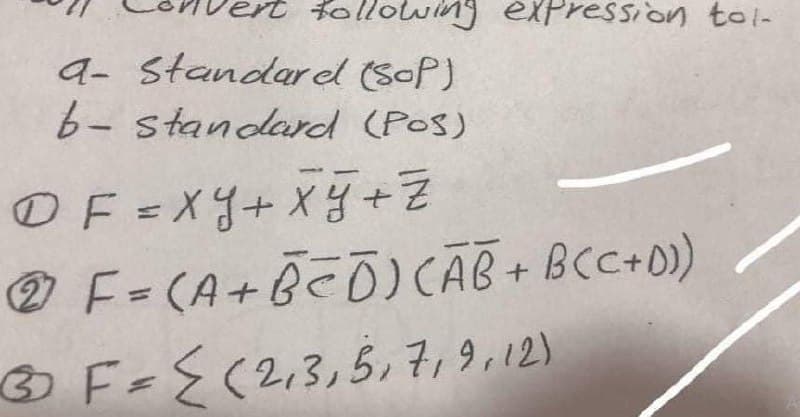 Convert following expression to:-
a- Standard (SOP)
b- standard (POS)
① F = xy + x̅ y̅ + z̅
② F = (A + B̅ C̅ D̅) (A̅ B̅ + B(C+D))
③ F = Σ (2,3,5,7,9,12)